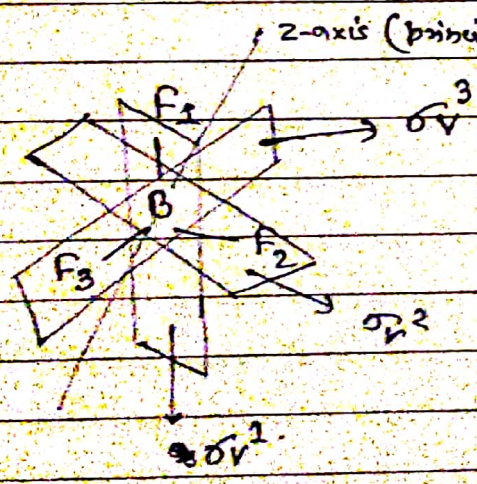 z-axis (princi
F1
σv3
B
F3
F2
σv2
σv1.